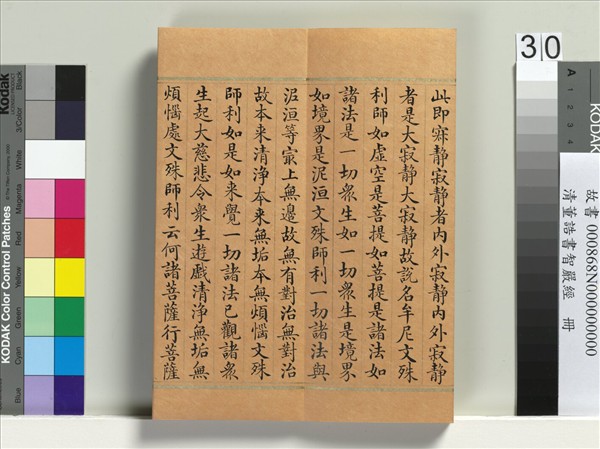 此即寂静寂静者内外寂静内外寂静
者是大寂静大寂静故說名牟尼文殊
利師如虛空是菩提如菩提是諸法如
諸法是一切衆生如一切衆生是境界
如境界是泥洹文殊師利一切諸法與
泥洹等冣上無邊故無有對治無對治
故本来清淨本来無垢本無煩惱文殊
師利如是如来覺一切諸法已觀諸衆
生起大慈悲令衆生遊戲清淨無垢無
煩惱處文殊師利云何諸菩薩行菩薩
30
A 1 2 3 4
KODAK
故書 000868N000000000
清董誥書智嚴經 冊
Kodak
KODAK Color Control Patches
Blue Cyan Green Yellow Red Magenta White 3/Color Black